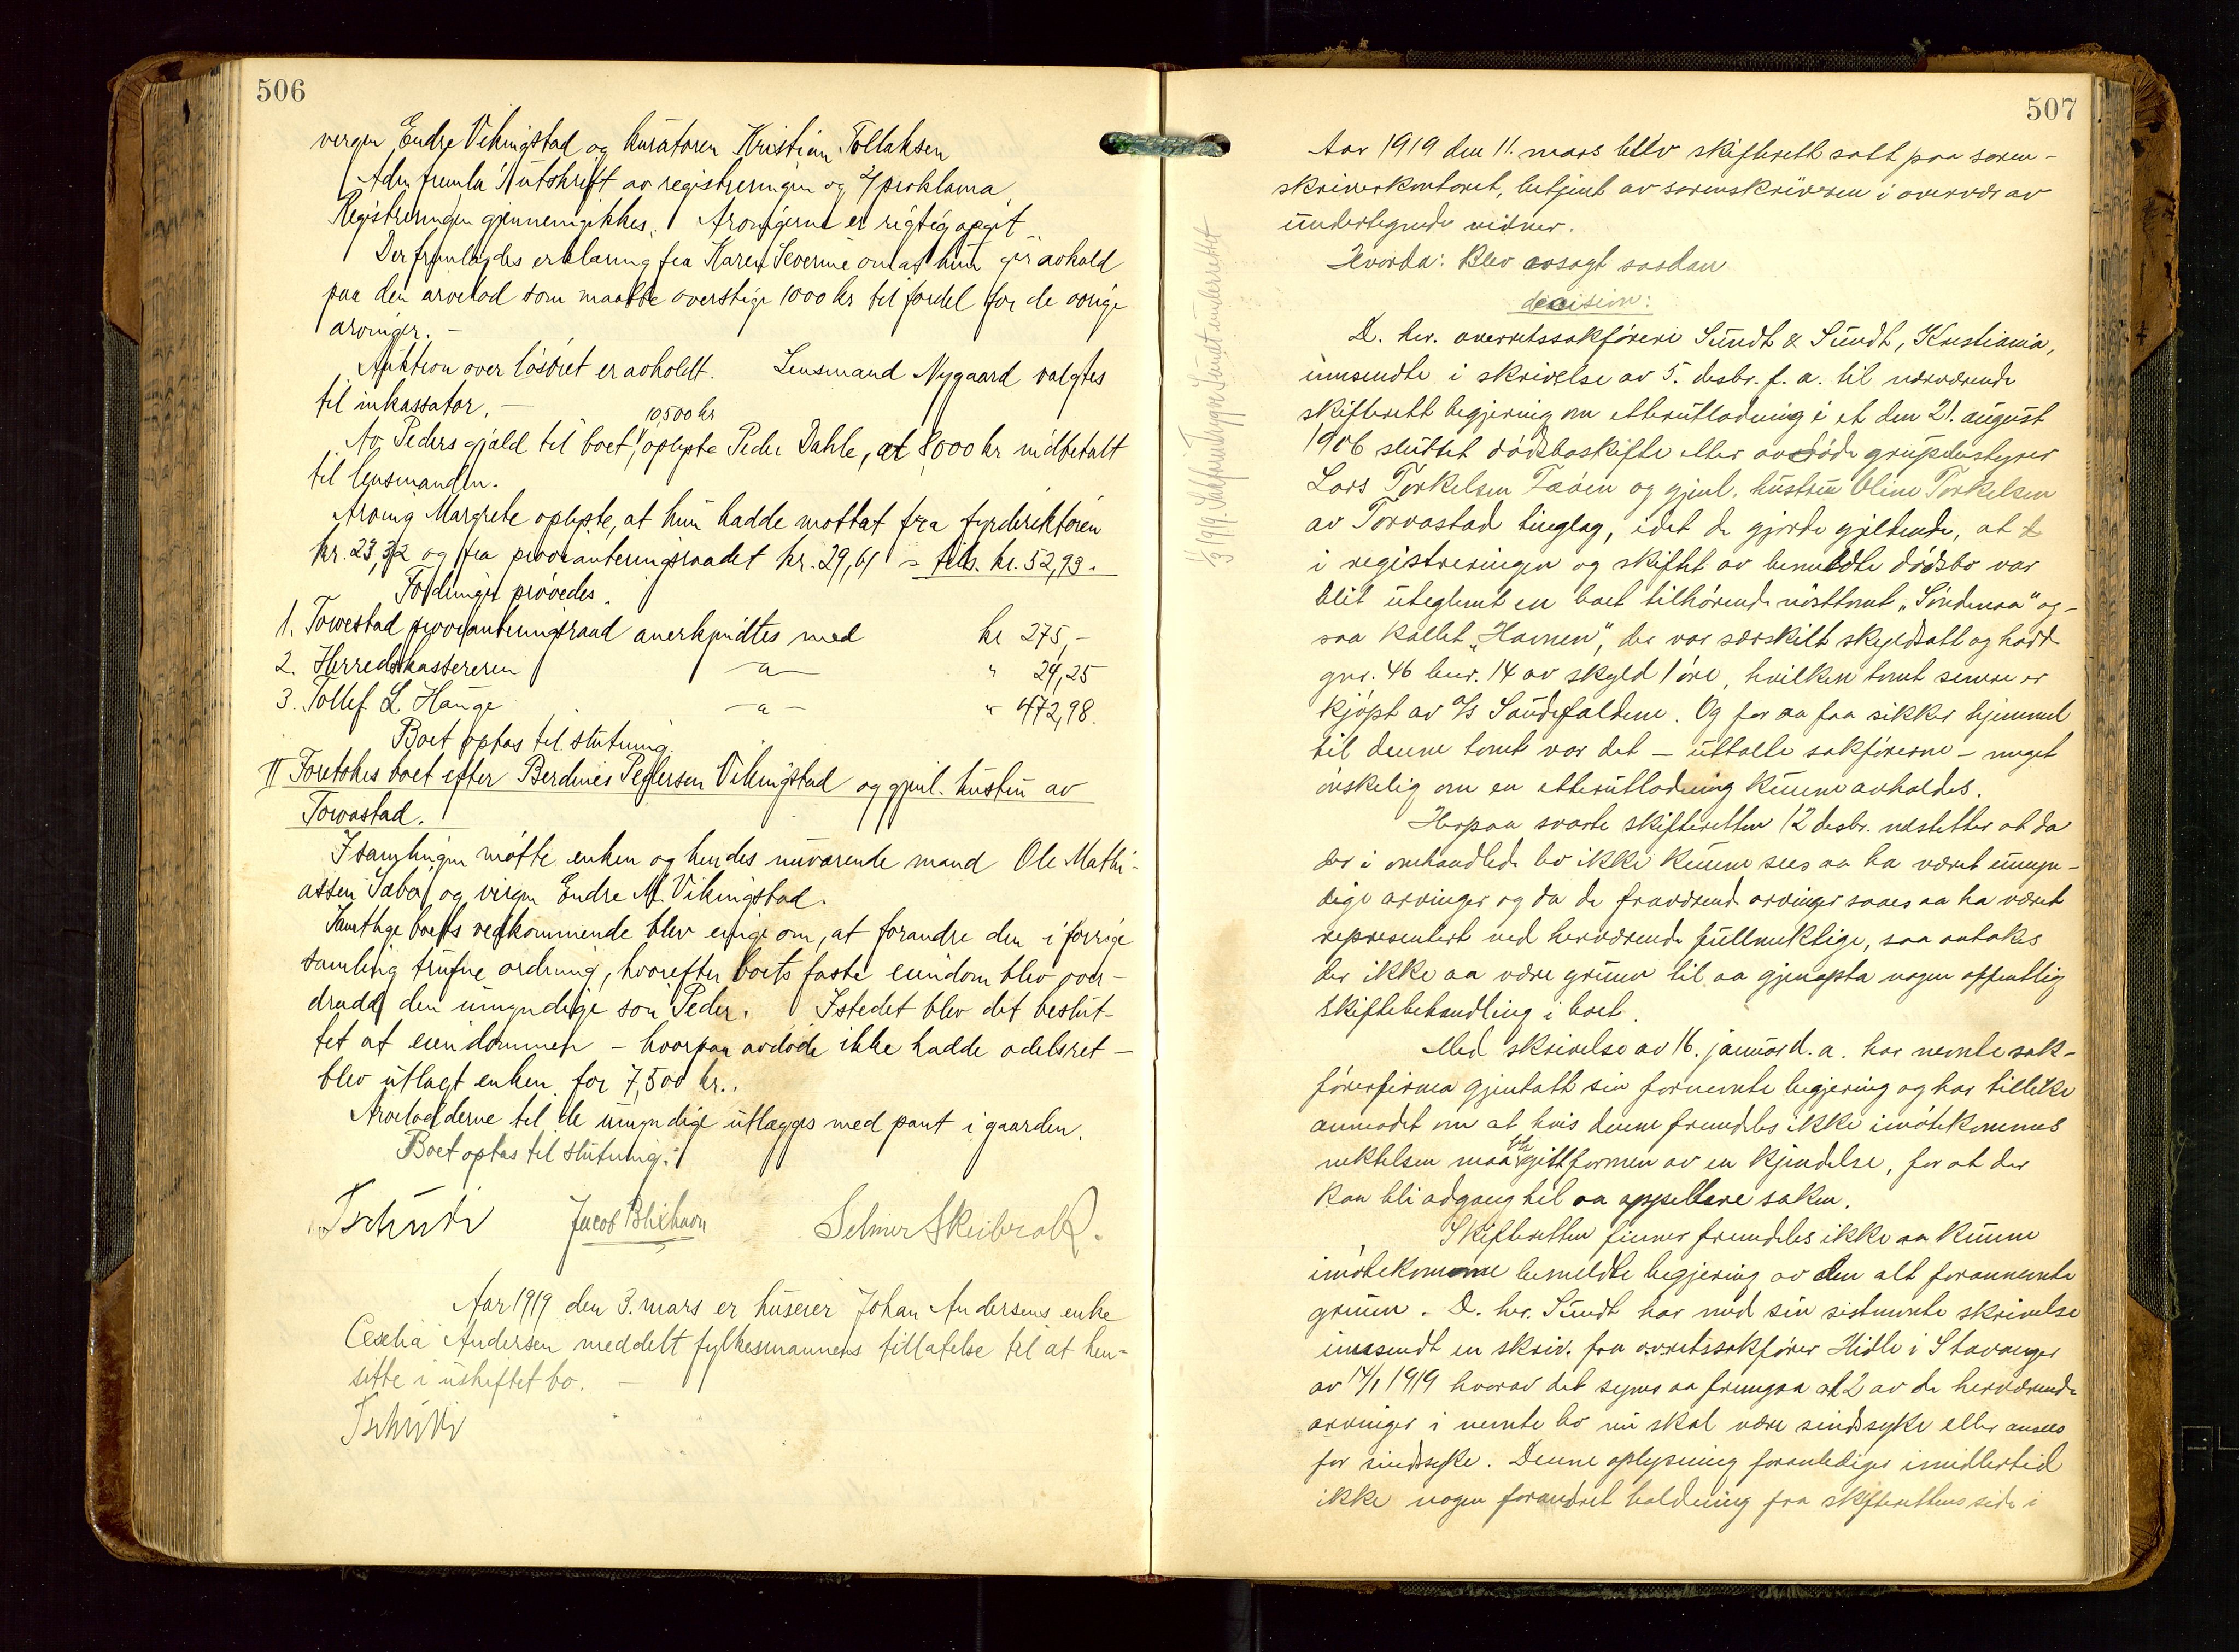 506
vergen Endre Vikingstad og kuratoren Kristian Tollaksen
Adm fremla 1/ utskrift av registreringen og 2/ proklama.
Registreringen gjennemgikkes. Arvingerne er rigtig opgit.
Der fremlagdes erklæring fra Karen Severine om at hun gir avkald
paa den arvelod som maatte overstige 1000 kr til fordel for de øvrige
arvinger. –
Auktion over løsøret er avholdt. Lensmand Nygaard valgtes
til inkassator. –
Av Peders gjæld til boet, 10,500 kr oplyste Peder Dahle, at 8000 kr indbetalt
til lensmanden.
Arving Margrete oplyste, at hun hadde mottat fra fyrdirektøren
kr. 23,32 og fra provianteringsraadet kr. 29,61 = tils. kr. 52,93.
Fordringer prøvedes.
1. Torvestad provianteringsraad anerkjendtes med kr 275,-
2. Herredskassereren —"— " 24,25
3. Tollef L. Hauge —"— " 472,98.
Boet optas til slutning.
II Foretokes boet efter Berdines Pedersen Vikingstad og gjenl. hustru av
Torvastad.
I samlingen møtte enken og hendes nuværende mand Ole Mathi-
assen Sæbø og vergen Endre M. Vikingstad.
Samtlige boets vedkommende blev enige om, at forandre den i forrige
samling trufne ordning, hvorefter boets faste eiendom blev over-
dradd den umyndige søn Peder. Istedet blev det beslut-
tet at eiendommen – hvorpaa avdøde ikke hadde odelsret –
blev utlagt enken for 7,500 kr..
Arvelodderne til de umyndige utlægges med pant i gaarden.
Boet optas til slutning.
Tschudi Jacob Blixhavn Selmer Skeibrok.
Aar 1919 den 3. mars er huseier Johan Andersens enke
Cecelia Andersen meddelt fylkesmannens tillatelse til at hen-
sitte i uskiftet bo. –
Tschudi
507
11/3 1919.
Aar 1919 den 11. mars blev skifterett satt paa soren-
skriverkontoret, betjent av sorenskriveren i overvær av
undertegnede vidner.
Hvorda: Blev avsagt saadan
decision:
D. hrr. overretssakførere Sundt & Sundt, Kristiania,
innsendte i skrivelse av 5. desbr. f. a. til nærværende
skifterett begjering om etterutlodning i et den 21. august
1906 sluttet dødsboskifte etter avdøde grubebestyrer
Lars Torkelsen Faøen og gjenl. hustru Oline Torkelsen
av Torvastad tinglag, idet de gjorde gjeldende, at
i registreringen og skiftet av bemeldte dødsbo var
blit uteglemt en boet tilhørende nøsttomt, "Søndenaa" og-
saa kallet "Havnen", der var særskilt skyldsatt og hadd
gnr. 46 bnr. 14 av skyld 1 øre, hvilken tomt senere er
kjøpt av A/S Saudefaldene. Og for aa faa sikker hjemmel
til denne tomt var det – uttalte sakførerne – meget
ønskelig om en etterutlodning kunne avholdes.
Herpaa svarte skifteretten 12 desbr. nestetter at da
der i omhandlede bo ikke kunne sees aa ha været umyn-
dige arvinger og da de fraværende arvinger saaes aa ha været
representert ved herværende fullmektige, saa antokes
der ikke aa være grunn til aa gjenopta nogen offentlig
skiftebehandling i boet.
Med skrivelse av 16. januar d. a. har nemnte sak-
førerfirma gjentatt sin fornemnte begjering og har tillike
anmodet om at hvis denne fremdeles ikke imøtekommes
nektelsen maa bli gitt formen av en kjendelse, for at der
kan bli adgang til aa appellere saken.
Skifteretten finner fremdeles ikke aa kunne
imøtekomme bemeldte begjering av den alt forannemnte
grunn. D. hrr. Sundt har med sin sistnemnte skrivelse
innsendt en skriv. fra overretssakfører Hidle i Stavanger
av 14/1 1919 hvorav det synes aa fremgaa at 2 av de herværende
arvinger i nemnte bo nu skal være sindssyke eller ansees
for sindssyke. Denne oplysning foranlediger imidlertid
ikke nogen forandret holdning fra skifterettens side i